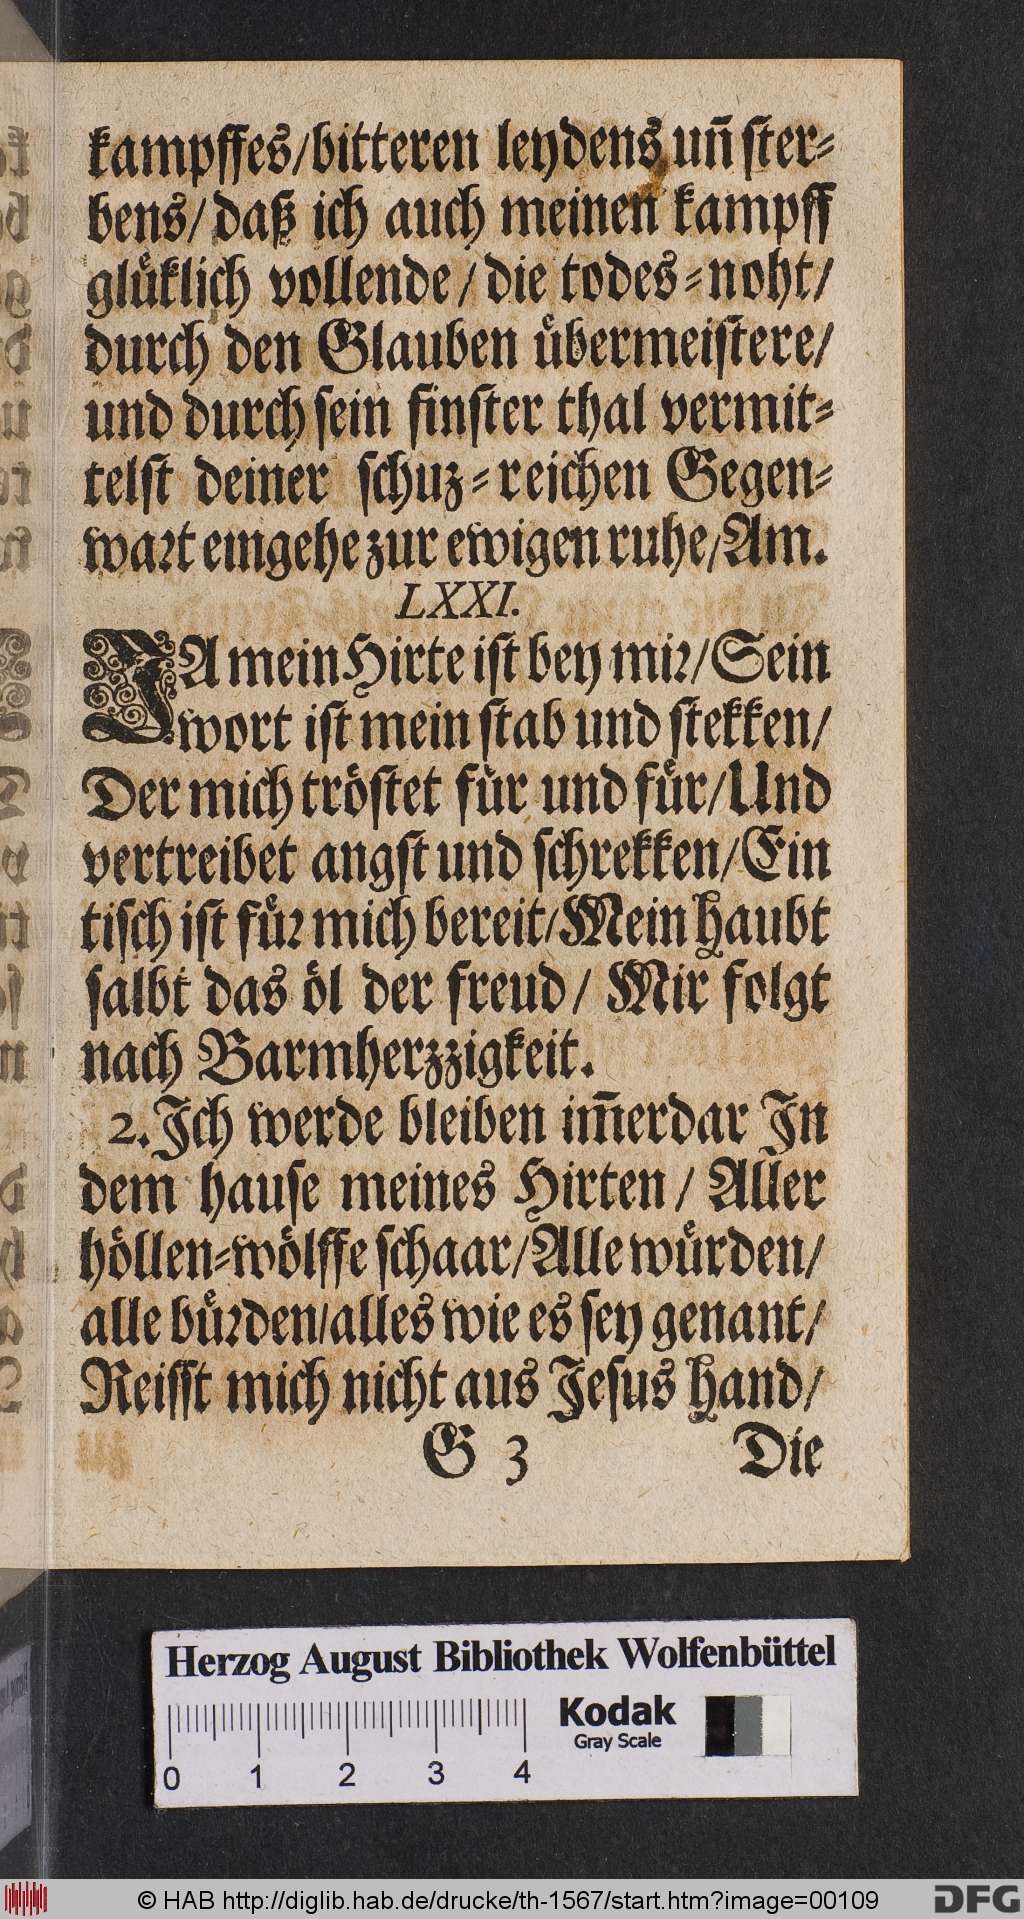 kampffes/bitteren leydens uñ ster-
bens/ daß ich auch meinen kampff
glüklich vollende/ die todes-noht/
durch den Glauben übermeistere/
und durch sein finster thal vermit-
telst deiner schuz-reichen Gegen-
wart eingehe zur ewigen ruhe/Am.
LXXI.
JA mein Hirte ist bey mir/Sein
wort ist mein stab und stekken/
Der mich tröstet für und für/Und
vertreibet angst und schrekken/Ein
tisch ist für mich bereit/Mein haubt
salbt das öl der freud/ Mir folgt
nach Barmherzzigkeit.
2. Ich werde bleiben im̄erdar In
dem hause meines Hirten/ Aller
höllen-wölffe schaar/Alle würden/
alle bürden/alles wie es sey genant/
Reisst mich nicht aus Jesus hand/
G 3 Die
Herzog August Bibliothek Wolfenbüttel
Kodak
Gray Scale
0 1 2 3 4
© HAB http://diglib.hab.de/drucke/th-1567/start.htm?image=00109
DFG